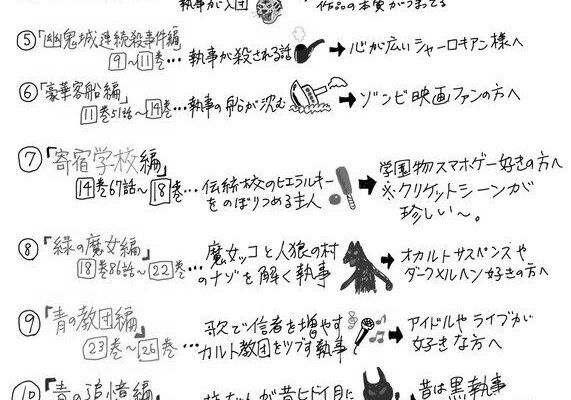 執事が入団
作品の本質がつまってる
⑤「幽鬼城連続殺事件編
9〜11巻…執事が殺される話
➡心が広いシャーロキアン様へ
⑥「豪華客船編」
11巻51話〜14巻…執事の船が沈む
➡ゾンビ映画ファンの方へ
⑦「寄宿学校編」
14巻67話〜18巻…伝統校のヒエラルキー
をのぼりつめる主人
➡学園物スマホゲー好きの方へ
※クリケットシーンが
珍しい〜。
⑧「緑の魔女編」
18巻86話〜22巻…魔女ッコと人狼の村
のナゾを解く執事
➡オカルトサスペンスや
ダークメルヘン好きの方へ
⑨「青の教団編」
23巻〜26巻…歌で信者を増やす
カルト教団をツブす執事
➡アイドルやライブが
好きな方へ
⑩「青の追憶編
昔は黒執事